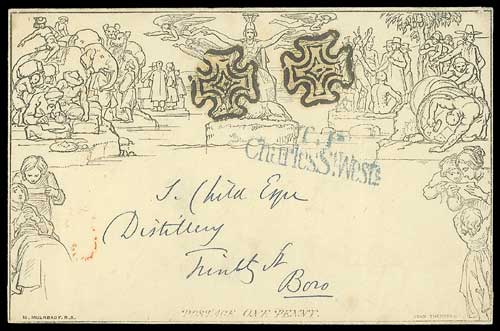 T.P
Charles St. West.
S. Child Esqre
Distillery
Trinity St
Boro
POSTAGE ONE PENNY.
W. MULREADY. R.A.
JOHN THOMPSON